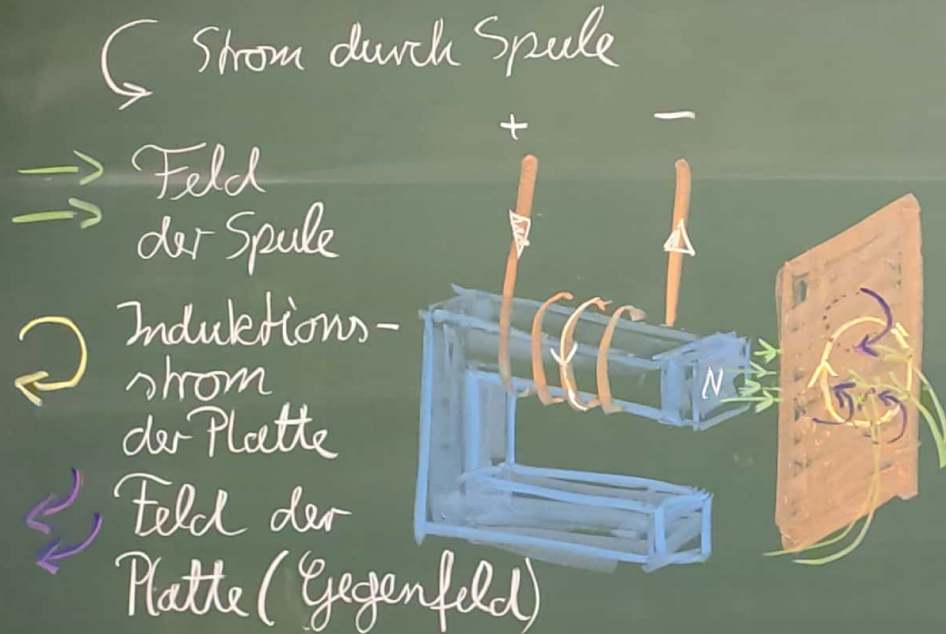 Strom durch Spule
+ −
Feld
der Spule
Induktions-
strom
der Platte
N
Feld der
Platte (Gegenfeld)